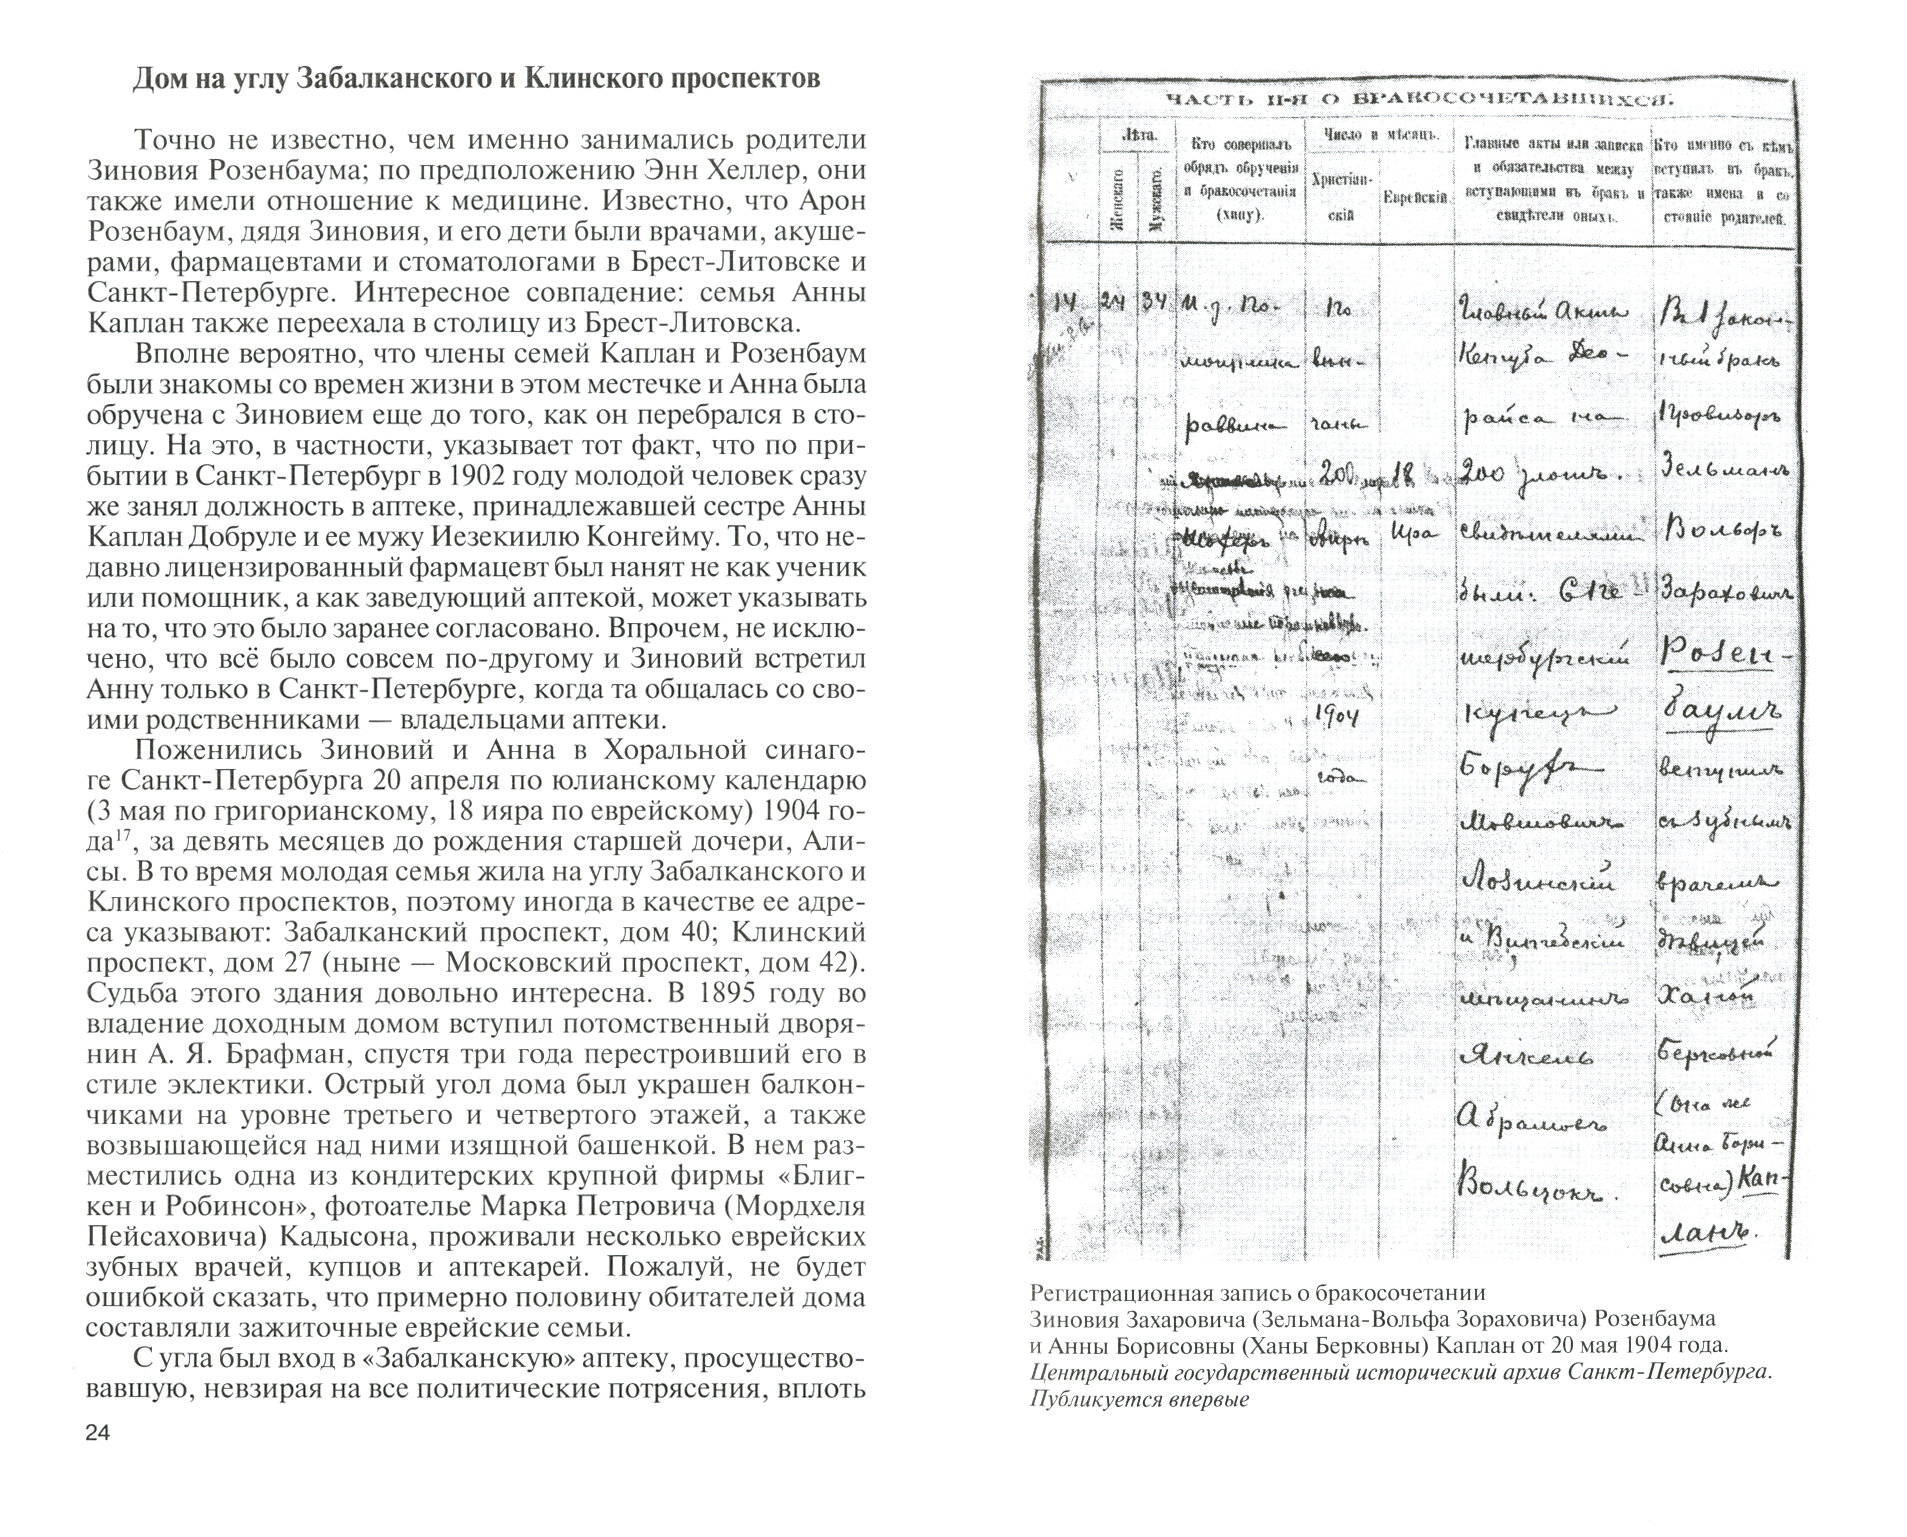 Дом на углу Забалканского и Клинского проспектов
Точно не известно, чем именно занимались родители
Зиновия Розенбаума; по предположению Энн Хеллер, они
также имели отношение к медицине. Известно, что Арон
Розенбаум, дядя Зиновия, и его дети были врачами, акуше-
рами, фармацевтами и стоматологами в Брест-Литовске и
Санкт-Петербурге. Интересное совпадение: семья Анны
Каплан также переехала в столицу из Брест-Литовска.
Вполне вероятно, что члены семей Каплан и Розенбаум
были знакомы со времен жизни в этом местечке и Анна была
обручена с Зиновием еще до того, как он перебрался в сто-
лицу. На это, в частности, указывает тот факт, что по при-
бытии в Санкт-Петербург в 1902 году молодой человек сразу
же занял должность в аптеке, принадлежавшей сестре Анны
Каплан Добруле и ее мужу Иезекиилю Конгейму. То, что не-
давно лицензированный фармацевт был нанят не как ученик
или помощник, а как заведующий аптекой, может указывать
на то, что это было заранее согласовано. Впрочем, не исклю-
чено, что всё было совсем по-другому и Зиновий встретил
Анну только в Санкт-Петербурге, когда та общалась со сво-
ими родственниками — владельцами аптеки.
Поженились Зиновий и Анна в Хоральной синаго-
ге Санкт-Петербурга 20 апреля по юлианскому календарю
(3 мая по григорианскому, 18 ияра по еврейскому) 1904 го-
да17, за девять месяцев до рождения старшей дочери, Али-
сы. В то время молодая семья жила на углу Забалканского и
Клинского проспектов, поэтому иногда в качестве ее адре-
са указывают: Забалканский проспект, дом 40; Клинский
проспект, дом 27 (ныне — Московский проспект, дом 42).
Судьба этого здания довольно интересна. В 1895 году во
владение доходным домом вступил потомственный дворя-
нин А. Я. Брафман, спустя три года перестроивший его в
стиле эклектики. Острый угол дома был украшен балкон-
чиками на уровне третьего и четвертого этажей, а также
возвышающейся над ними изящной башенкой. В нем раз-
местились одна из кондитерских крупной фирмы «Блиг-
кен и Робинсон», фотоателье Марка Петровича (Мордхеля
Пейсаховича) Кадысона, проживали несколько еврейских
зубных врачей, купцов и аптекарей. Пожалуй, не будет
ошибкой сказать, что примерно половину обитателей дома
составляли зажиточные еврейские семьи.
С угла был вход в «Забалканскую» аптеку, просущество-
вавшую, невзирая на все политические потрясения, вплоть
24
ЧАСТЬ II-Я О БРАКОСОЧЕТАВШИХСЯ.
Лѣта.
Женскаго
Мужскаго.
Кто совершалъ
обрядъ обрученія
и бракосочетанія
(хипу).
Число и мѣсяцъ.
Христіан-
скій
Еврейскій.
Главные акты или записи
и обязательства между
вступающими въ бракъ и
свидѣтели оныхъ.
Кто именно съ кѣмъ
вступилъ въ бракъ,
также имена и со
стояніе родителей.
14
24
34
И. д. По-
мощника
раввина
20
18
Ира
1904
года
Главный Актъ
Кетуба Део-
райса на
200 злотъ.
свидѣтелями
были: С Пе-
тербургскій
купецъ
Борухъ
Мовшовичъ
Лозинскій
и Витебскій
мѣщанинъ
Янкель
Абрамовъ
Въ 1 закон-
ный бракъ
Провизоръ
Зельманъ
Вольфъ
Зараховичъ
Розен-
баумъ
вступилъ
съ зубнымъ
врачемъ
дѣвицей
Ханой
Берковной
(она же
Анна Бори-
совна) Кап-
ланъ.
Регистрационная запись о бракосочетании
Зиновия Захаровича (Зельмана-Вольфа Зораховича) Розенбаума
и Анны Борисовны (Ханы Берковны) Каплан от 20 мая 1904 года.
Центральный государственный исторический архив Санкт-Петербурга.
Публикуется впервые